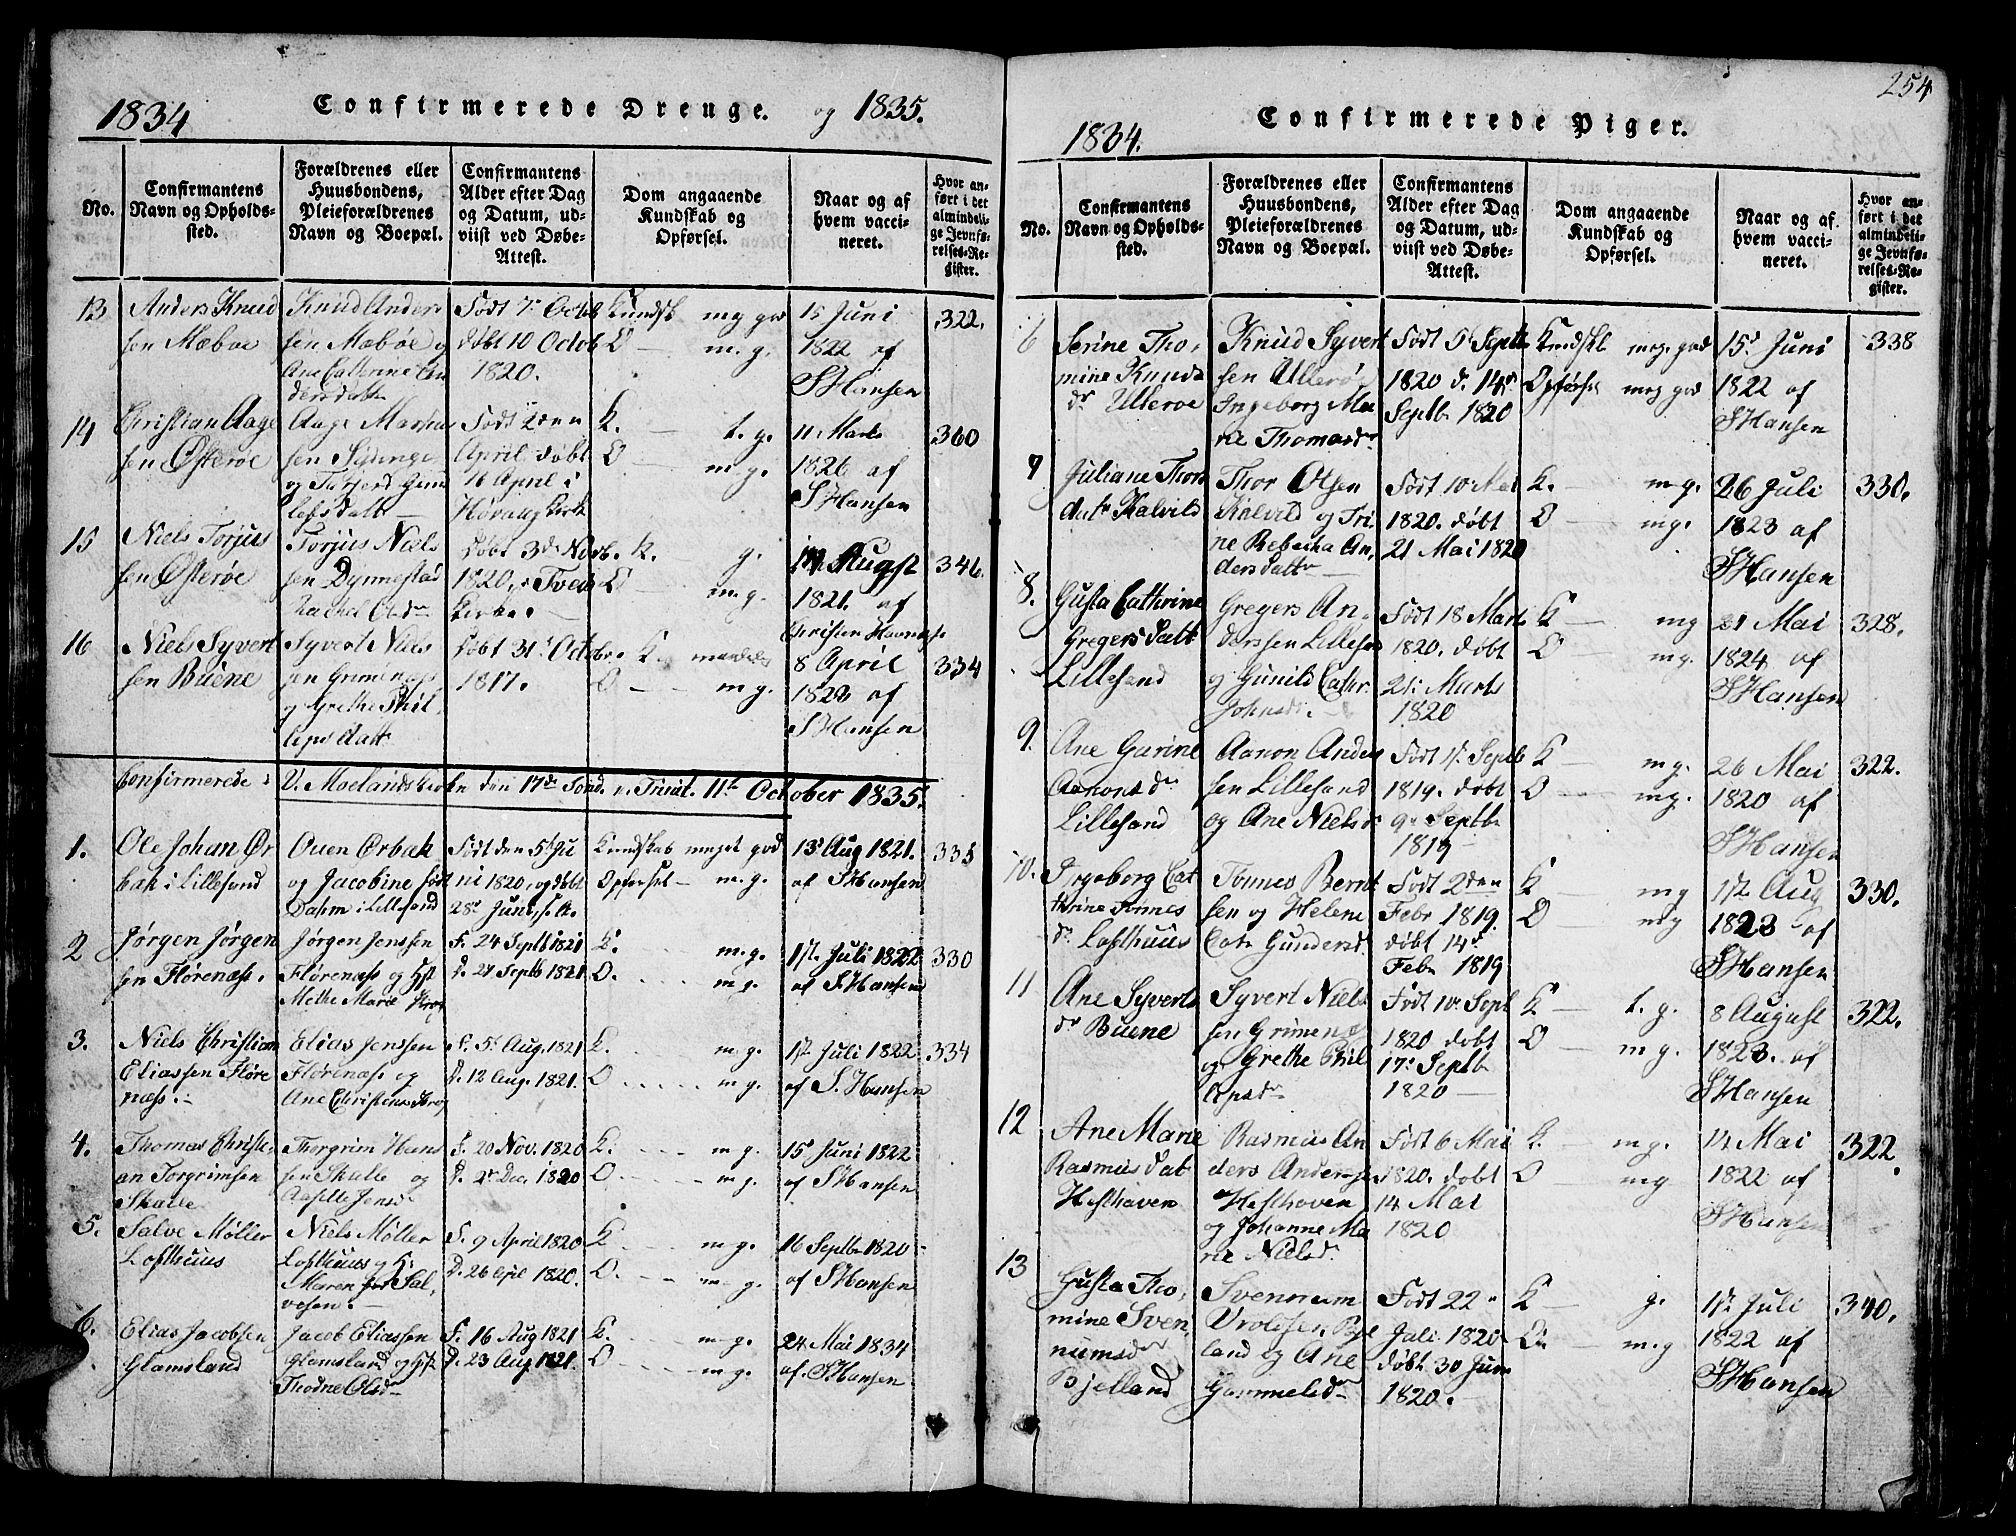 1834 Confirmerede Drenge. og 1835.
No.
Confirmantens
Navn og Opholds-
sted.
Forældrenes eller
Huusbondens,
Pleieforældrenes
Navn og Boepæl.
Confirmantens
Alder efter Dag
og Datum, ud-
viist ved Døbe-
Attest.
Dom angaaende
Kundskab og
Opførsel.
Naar og af
hvem vacci-
neret.
Hvor an-
ført i det
almindeli-
ge Jevnfø-
relses-Re-
gister.
13
Anders Knud
sen Mæbøe
Knud Anders
sen Mæbøe og
Ane Cathrine An
dersdattr
Født 7. Octob
døbt 10 Octob
1820.
Kundsk meg god
O — m. g.
15 Juni
1822 af
S Hansen
322.
14
Christian Aage
sen Østerøe
Aage Marcus
sen
og Torjerd Gun
lefsdatt —
Født 2den
April døbt
16 April i
Høvaag Kirk
K. — t. g.
O — m. g.
11 Marts
1826 af
S Hansen
360
15
Niels Torjus
sen Østerøe
Torjus Niels
sen Dynnestad
Rachel Olsdr
Døbt 3de Novb.
1820, i Tveid
Kirke.
K. — g.
O — m. g.
17 Augst
1821. af
Christen
346.
16
Niels Syvert
sen Buene
Syvert Niels
sen Grimenæs
og Grethe Phil
lipsdatt
Døbt 31. Octobr.
1817.
K. maadelig
O — m. g.
8 April
1823 af
S Hansen
334
Confirmerede i V. Moelands Kirke den 17de Sønd. e. Trinit. 11te October 1835.
1.
Ole Johan Ør
bak i Lillesand
Ouen Ørbak
og Jacobine født
Dahm i Lillesand
Født den 5 Ju
ni 1820, og døbt
28. Juni, s. A.
Kundskab meget god
Opførsel — m. g.
13 Aug 1821.
af S Hansen
335
2
Jørgen Jørgen
sen Flørenæss.
Jørgen Jenssen
Flørenæss og Hst
Methe Marie
F. 24 Septb 1821
D. 27 Septb 1821
K. m. g.
O. m. g.
17. Juli 1822
af S. Hansen
330
3.
Niels Christian
Eliassen Fløre
næss.
Elias Jenssen
Flørenæss og
Ane Christens
F. 5. Aug. 1821
D. 12 Aug. 1821.
K. m. g.
O m. g.
17. Juli 1822
af S. Hansen
334
4.
Thomas Christi,
an Torgrimsen
Skalle
Thorgrim Hans
sen Skalle og
Aasille Jensdr
F. 20 Nov. 1820
D. 2. Dec. 1820
K. m. g.
O m. g.
15 Juni 1822
af S Hansen
5.
Salve Møller
Lofthuus
Niels Møller
Lofthuus og H.
Maren Sal,
vesen. —
F. 9 April 1820
D. 26 Apl 1820.
K m. g.
O. m. g.
16 Septb 1820
af S Hansen
6.
Elias Jacobsen
Glamsland
Jacob Eliassen
Glamsland og Hst
Thodne Olsdr
F. 16 Aug 1821
D. 23 Aug 1821.
K. m. g.
O m. g.
24 Mai 1834
af. S Hansen
254
1834. Confirmerede Piger.
No.
Confirmantens
Navn og Opholds-
sted.
Forældrenes eller
Huusbondens,
Pleieforældrenes
Navn og Boepæl.
Confirmantens
Alder efter Dag
og Datum, ud-
viist ved Døbe-
Attest.
Dom angaaende
Kundskab og
Opførsel.
Naar og af
hvem vacci-
neret.
Hvor an-
ført i det
almindeli-
ge Jevnfø-
relses-Re-
gister.
6
Serine Tho,
mine Knuds
dr Ulterøe
Knud Syvert
sen Ulterø
Ingeborg Ma
rie Thomasdr
Født 5. Septb
1820 d. 14de
Septb 1820
Kundskb meg. god
Opførsel meg god
15. Juni
1822 af
S Hansen
338
7
Juliane Thors
datr Kalvild
Thor Olsen
Kalvild og Tri
ne Rebecka An,
dersdattr
Født 10 Mai
1820. døbt
21 Mai 1820
K. m. g.
O — mg.
26 Juli
1823 af
S Hansen
330.
8.
Gusta Cathrine
Gregers Datt
Lillesand
Gregers An,
derssen Lillesand
og Gunild Cathr.
Johnsdr. —
Født 18 Marts
1820. døbt
21. Marts
1820
K — mg
O — mg.
21 Mai
1824 af
S Hansen
328.
9.
Ane Garine
Aanonsdr
Lillesand
Aanon Anders
sen Lillesand
og Ane Nielsdr
Født 1. Septb
1819. døbt
9. Septb
1819
K — m. g.
O — mg.
26 Mai
1820 af
S Hansen
322.
10.
Ingeborg Cat
hrine Tonnes
dr Lofthuus
Tonnes Bernt
sen og Helene
Cat. Gundersd.
Født 2den
Febr 1819.
døbt 14de
Febr 1819
K — mg
O — mg
17 Aug
1823 af
S Hansen
330.
11
Ane Syverts
dr Buene
Syvert Niels
sen Grimenæs
og Grethe Phil
lipsdr
Født 10. Sept
1820 døbt
17. Septb
1820 —
K — t. g.
O — m g.
8 August
1823. af
S Hansen
322.
12
Ane Marie
Rasmus Dat
Hesthaven
Rasmus An
ders Andersen
Hesthaven
og Johanne Ma
rie Nielsdr
Født 6 Mai
1820. døbt
14 Mai
1820
K. — m. g.
O — mg
14 Mai
1822 af
S Hansen
322.
13
Gusta Tho,
mine Sven,
numsdr
Bjelland
Svennum
Vrolesen Bjel
land og Ane
Gammelsdr
Født 22
Juli 1820
døbt 30 Juni
1820.
K — g.
O. — m. g
17 Juli
1822 af
S Hansen
340.